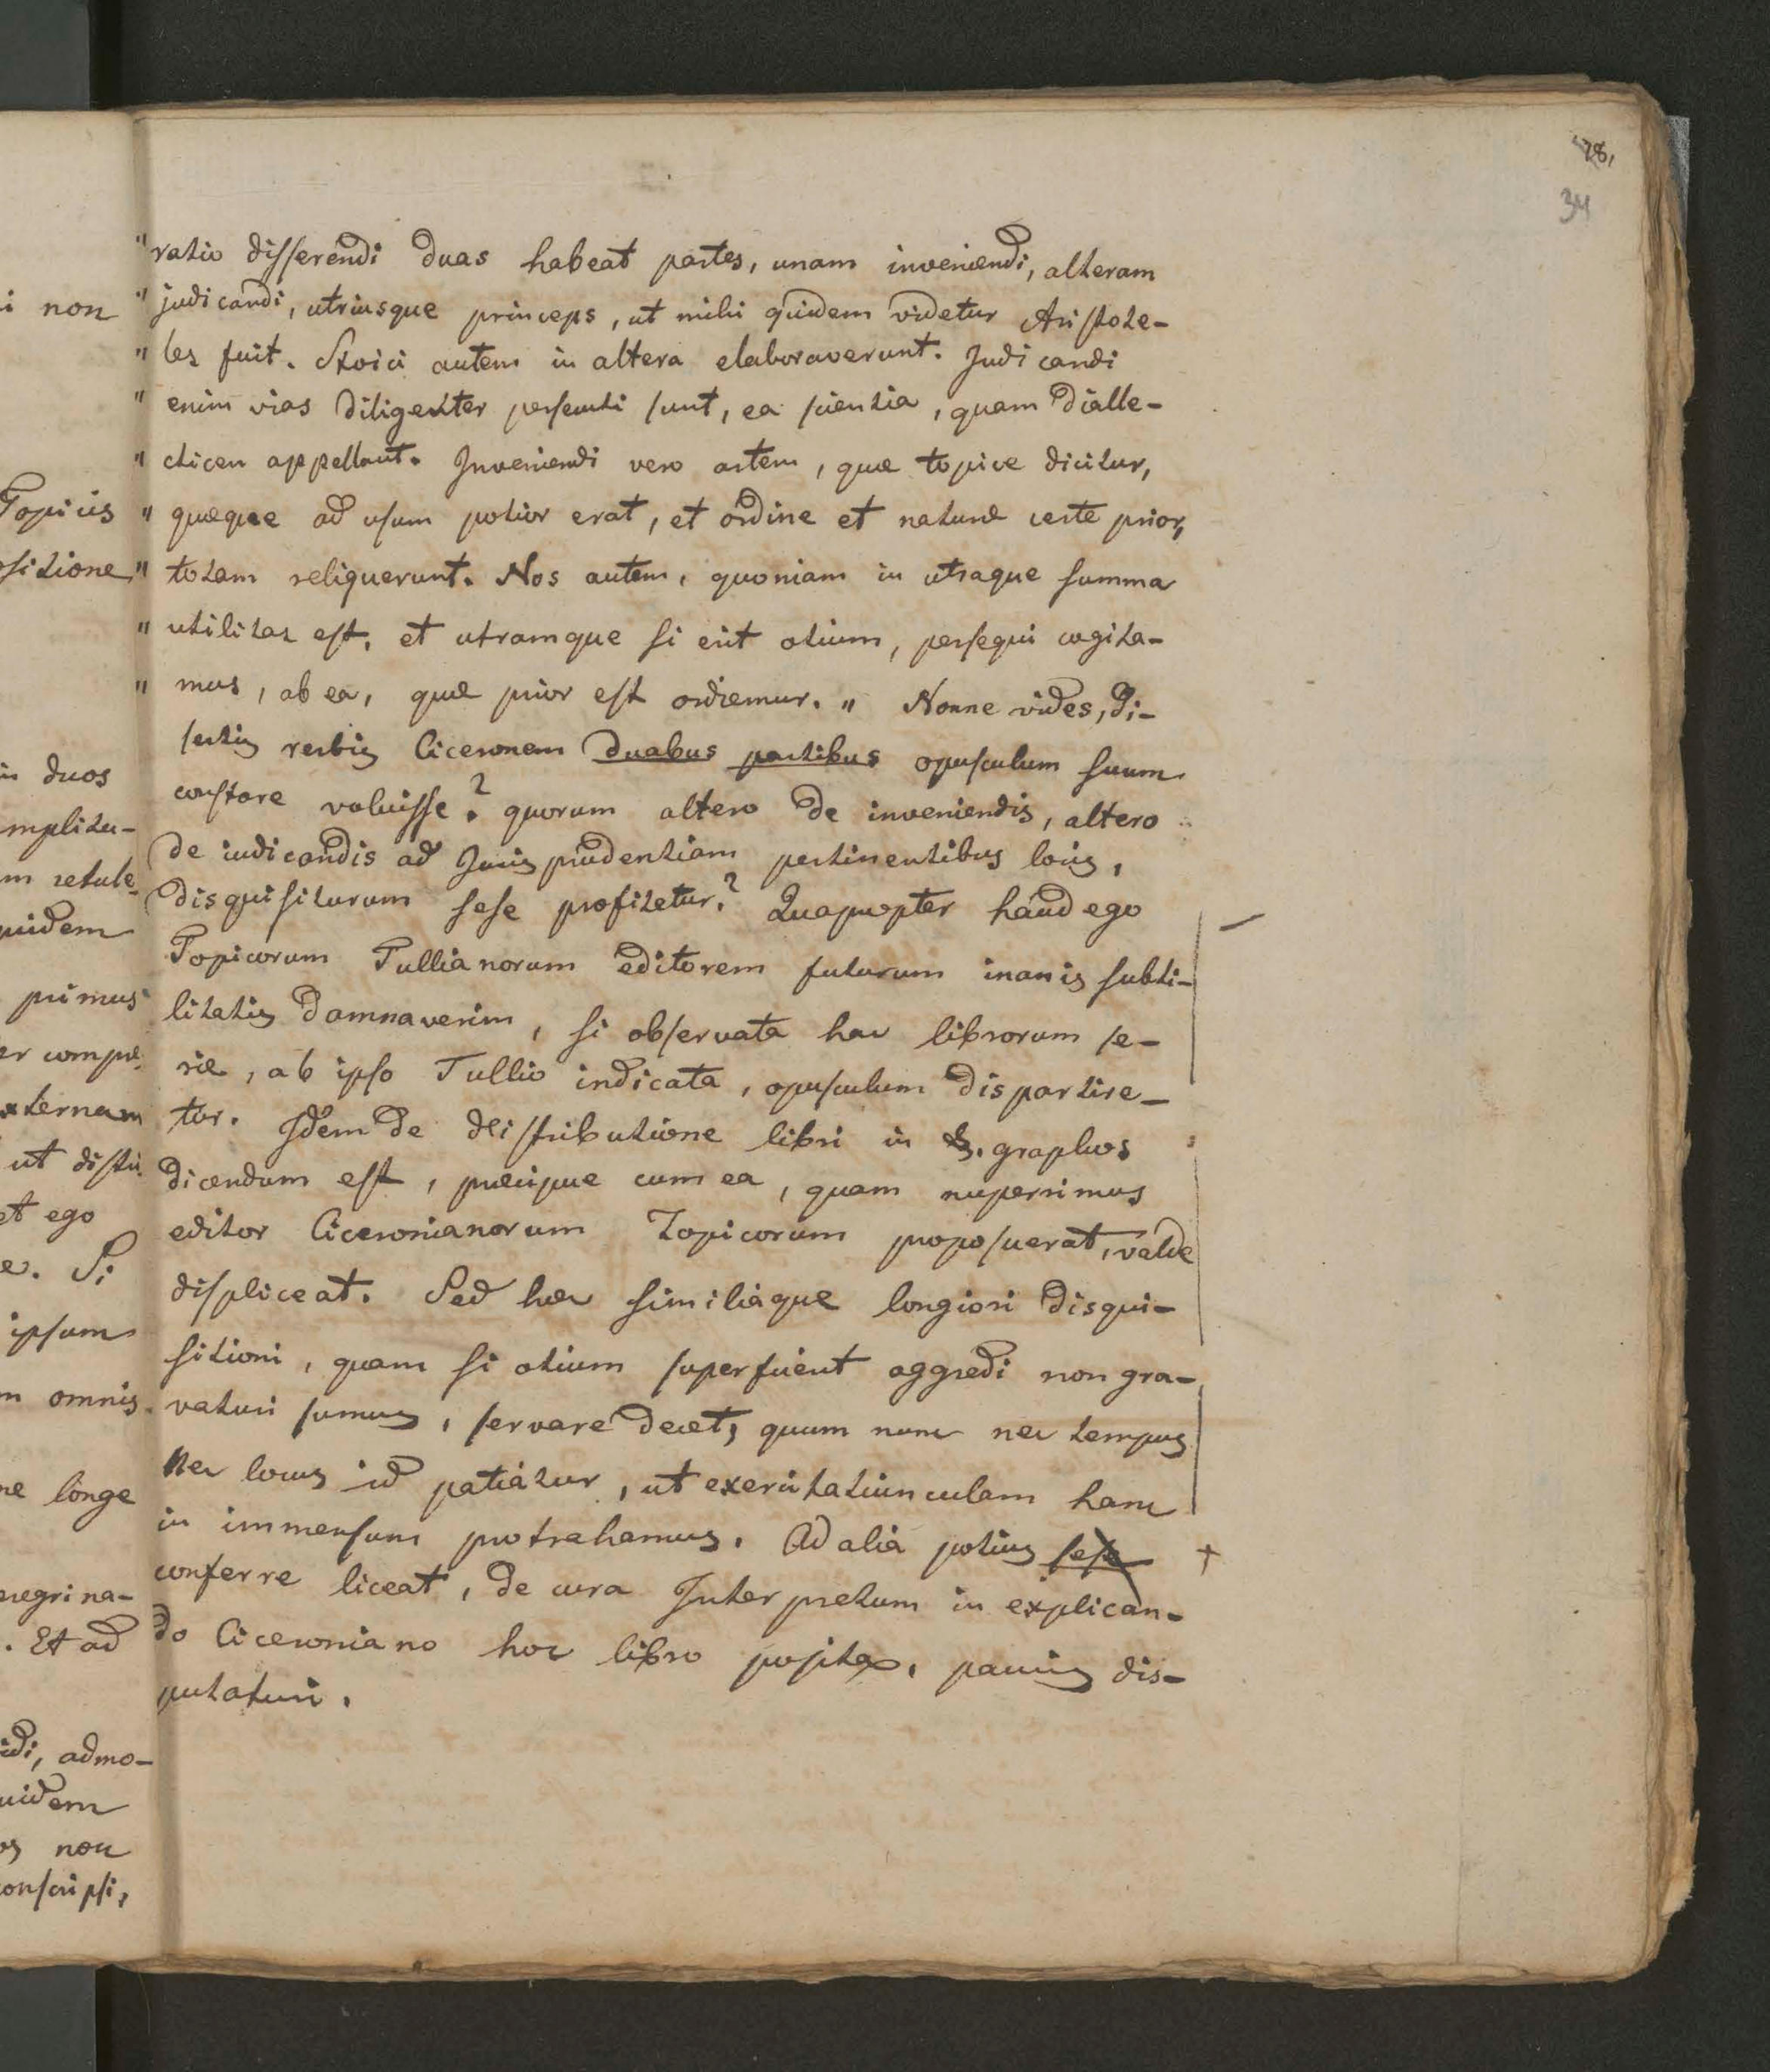 78,
34
" ratio disserendi duas habeat partes, unam inveniendi, alteram
" judicandi, utriusque princeps, ut mihi quidem videtur Aristote-
" les fuit. Stoici autem in altera elaboraverunt. Judicandi
" enim vias diligenter persecuti sunt, ea scientia, quam Dialle-
" cticen appellant. Inveniendi vero artem, quæ topice dicitur,
" quæque ad usum potior erat, et ordine et naturæ certe prior,
" totam reliquerunt. Nos autem, quoniam in utraque summa
" utilitas est, et utramque si erit otium, persequi cogita-
" mus, ab ea, quæ prior est ordiemur. " Nonne vides, di-
sertis verbis Ciceronem duabus partibus opusculum suum
constare voluisse? quorum altero de inveniendis, altero
de iudicandis ad Jurisprudentiam pertinentibus locis,
disquisiturum sese profitetur? Quapropter haud ego
Topicorum Tullianorum editorem futurum inanis subti-
litatis damnaverim, si observata hac librorum se-
rie, ab ipso Tullio indicata, opusculum dispartire-
tur. Idem de distributione libri in §. graphos
dicendum est, præcipue cum ea, quam nuperrimus
editor Ciceronianorum Topicorum proposuerat, valde
displiceat. Sed hæc similiaque longiori disqui-
sitioni, quam si otium superfuerit aggredi non gra-
vaturi sumus, servare decet, quum nunc nec tempus
nec locus id patiatur, ut exercitatiunculam hanc
in immensum protrahamus. Ad alia potius sese +
conferre liceat, de cura Interpretum in explican-
do Ciceroniano hoc libro posita, paucis dis-
putaturi.
i non
Topicis
sitione
in duos
mplitu-
m retule-
uidem
primus
xternam
et ego
e. Si
ipsum
m omnis
ne longe
eregrina-
. Et ad
idi, admo-
uidem
os non
onscripsi,